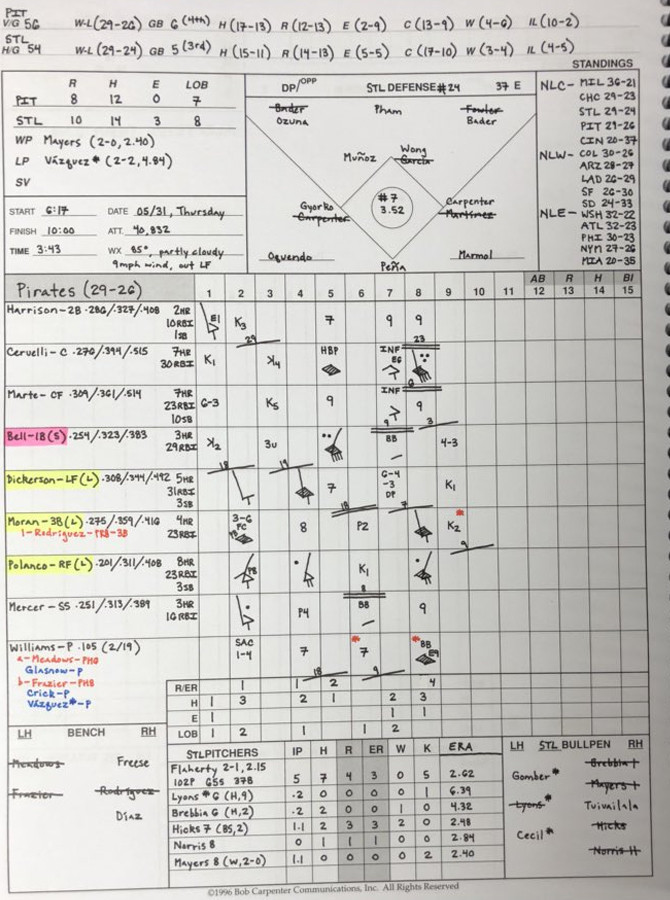 PIT
V/G 56 W-L (29-26) GB 6 (4th) H (17-13) R (12-13) E (2-9) C (13-9) W (4-6) IL (10-2)
STL
H/G 54 W-L (29-24) GB 5 (3rd) H (15-11) R (14-13) E (5-5) C (17-10) W (3-4) IL (4-5)
STANDINGS
R H E LOB
PIT 8 12 0 7
STL 10 14 3 8
WP Mayers (2-0, 2.40)
LP Vázquez* (2-2, 4.84)
SV
START 6:17 DATE 05/31, Thursday
FINISH 10:00 ATT. 40,832
TIME 3:43 WX 85°, partly cloudy
9mph wind, out LF
DP/OPP STL DEFENSE #24 37 E
Bader Pham Fowler
Ozuna Bader
Wong
Muñoz Garcia
Gyorko #7 Carpenter
Carpenter 3.52 Martinez
Oquendo Marmol
Peña
NLC- MIL 36-21
CHC 29-23
STL 29-24
PIT 29-26
CIN 20-37
NLW- COL 30-26
ARZ 28-27
LAD 26-29
SF 26-30
SD 24-33
NLE- WSH 32-22
ATL 32-23
PHI 30-23
NYM 27-26
MIA 20-35
Pirates (29-26) 1 2 3 4 5 6 7 8 9 10 11 AB 12 R 13 H 14 BI 15
Harrison-2B .286/.327/.408 2HR E1 K3 7 9 9
10RBI
1SB 29 23
Cervelli-C .270/.394/.515 7HR K1 K4 HBP INF E6
30RBI
Marte-CF .309/.361/.514 7HR 6-3 K5 9 INF 9
23RBI
10SB 9 3
Bell-1B(S) .254/.323/.383 3HR K2 3u BB 4-3
29RBI
18 19
Dickerson-LF(L) .308/.344/.492 5HR 7 6-4-3 DP K1
31RBI
3SB 18 7
Moran-3B(L) .275/.359/.416 4HR 3-6 FC 8 P2 K2
1-Rodríguez-PR8-3B 23RBI
9
Polanco-RF(L) .201/.311/.408 8HR PB K1
23RBI
3SB 8
Mercer-SS .251/.313/.389 3HR P4 BB 9
16RBI
Williams-P .105 (2/19) SAC 1-4 7 7 BB E9
a-Meadows-PH6
Glasnow-P
b-Frazier-PH8
Crick-P
Vázquez*-P
18 9
R/ER 1 1 2 4
H 1 3 2 1 2 3
E 1 1 1
LOB 1 2 1 1 2
LH BENCH RH
Meadows Freese
Frazier Rodríguez
Díaz
STL PITCHERS IP H R ER W K ERA
Flaherty 2-1, 2.15
102P 65S 37B 5 7 4 3 0 5 2.62
Lyons* 6 (H,9) .2 0 0 0 0 1 6.39
Brebbia 6 (H,2) .2 2 0 0 1 0 4.32
Hicks 7 (BS,2) 1.1 2 3 3 2 0 2.48
Norris 8 0 1 1 1 0 0 2.84
Mayers 8 (W,2-0) 1.1 0 0 0 0 2 2.40
LH STL BULLPEN RH
Brebbia
Gomber* Mayers
Lyons* Tuivailala
Hicks
Cecil*
Norris H
©1996 Bob Carpenter Communications, Inc. All Rights Reserved